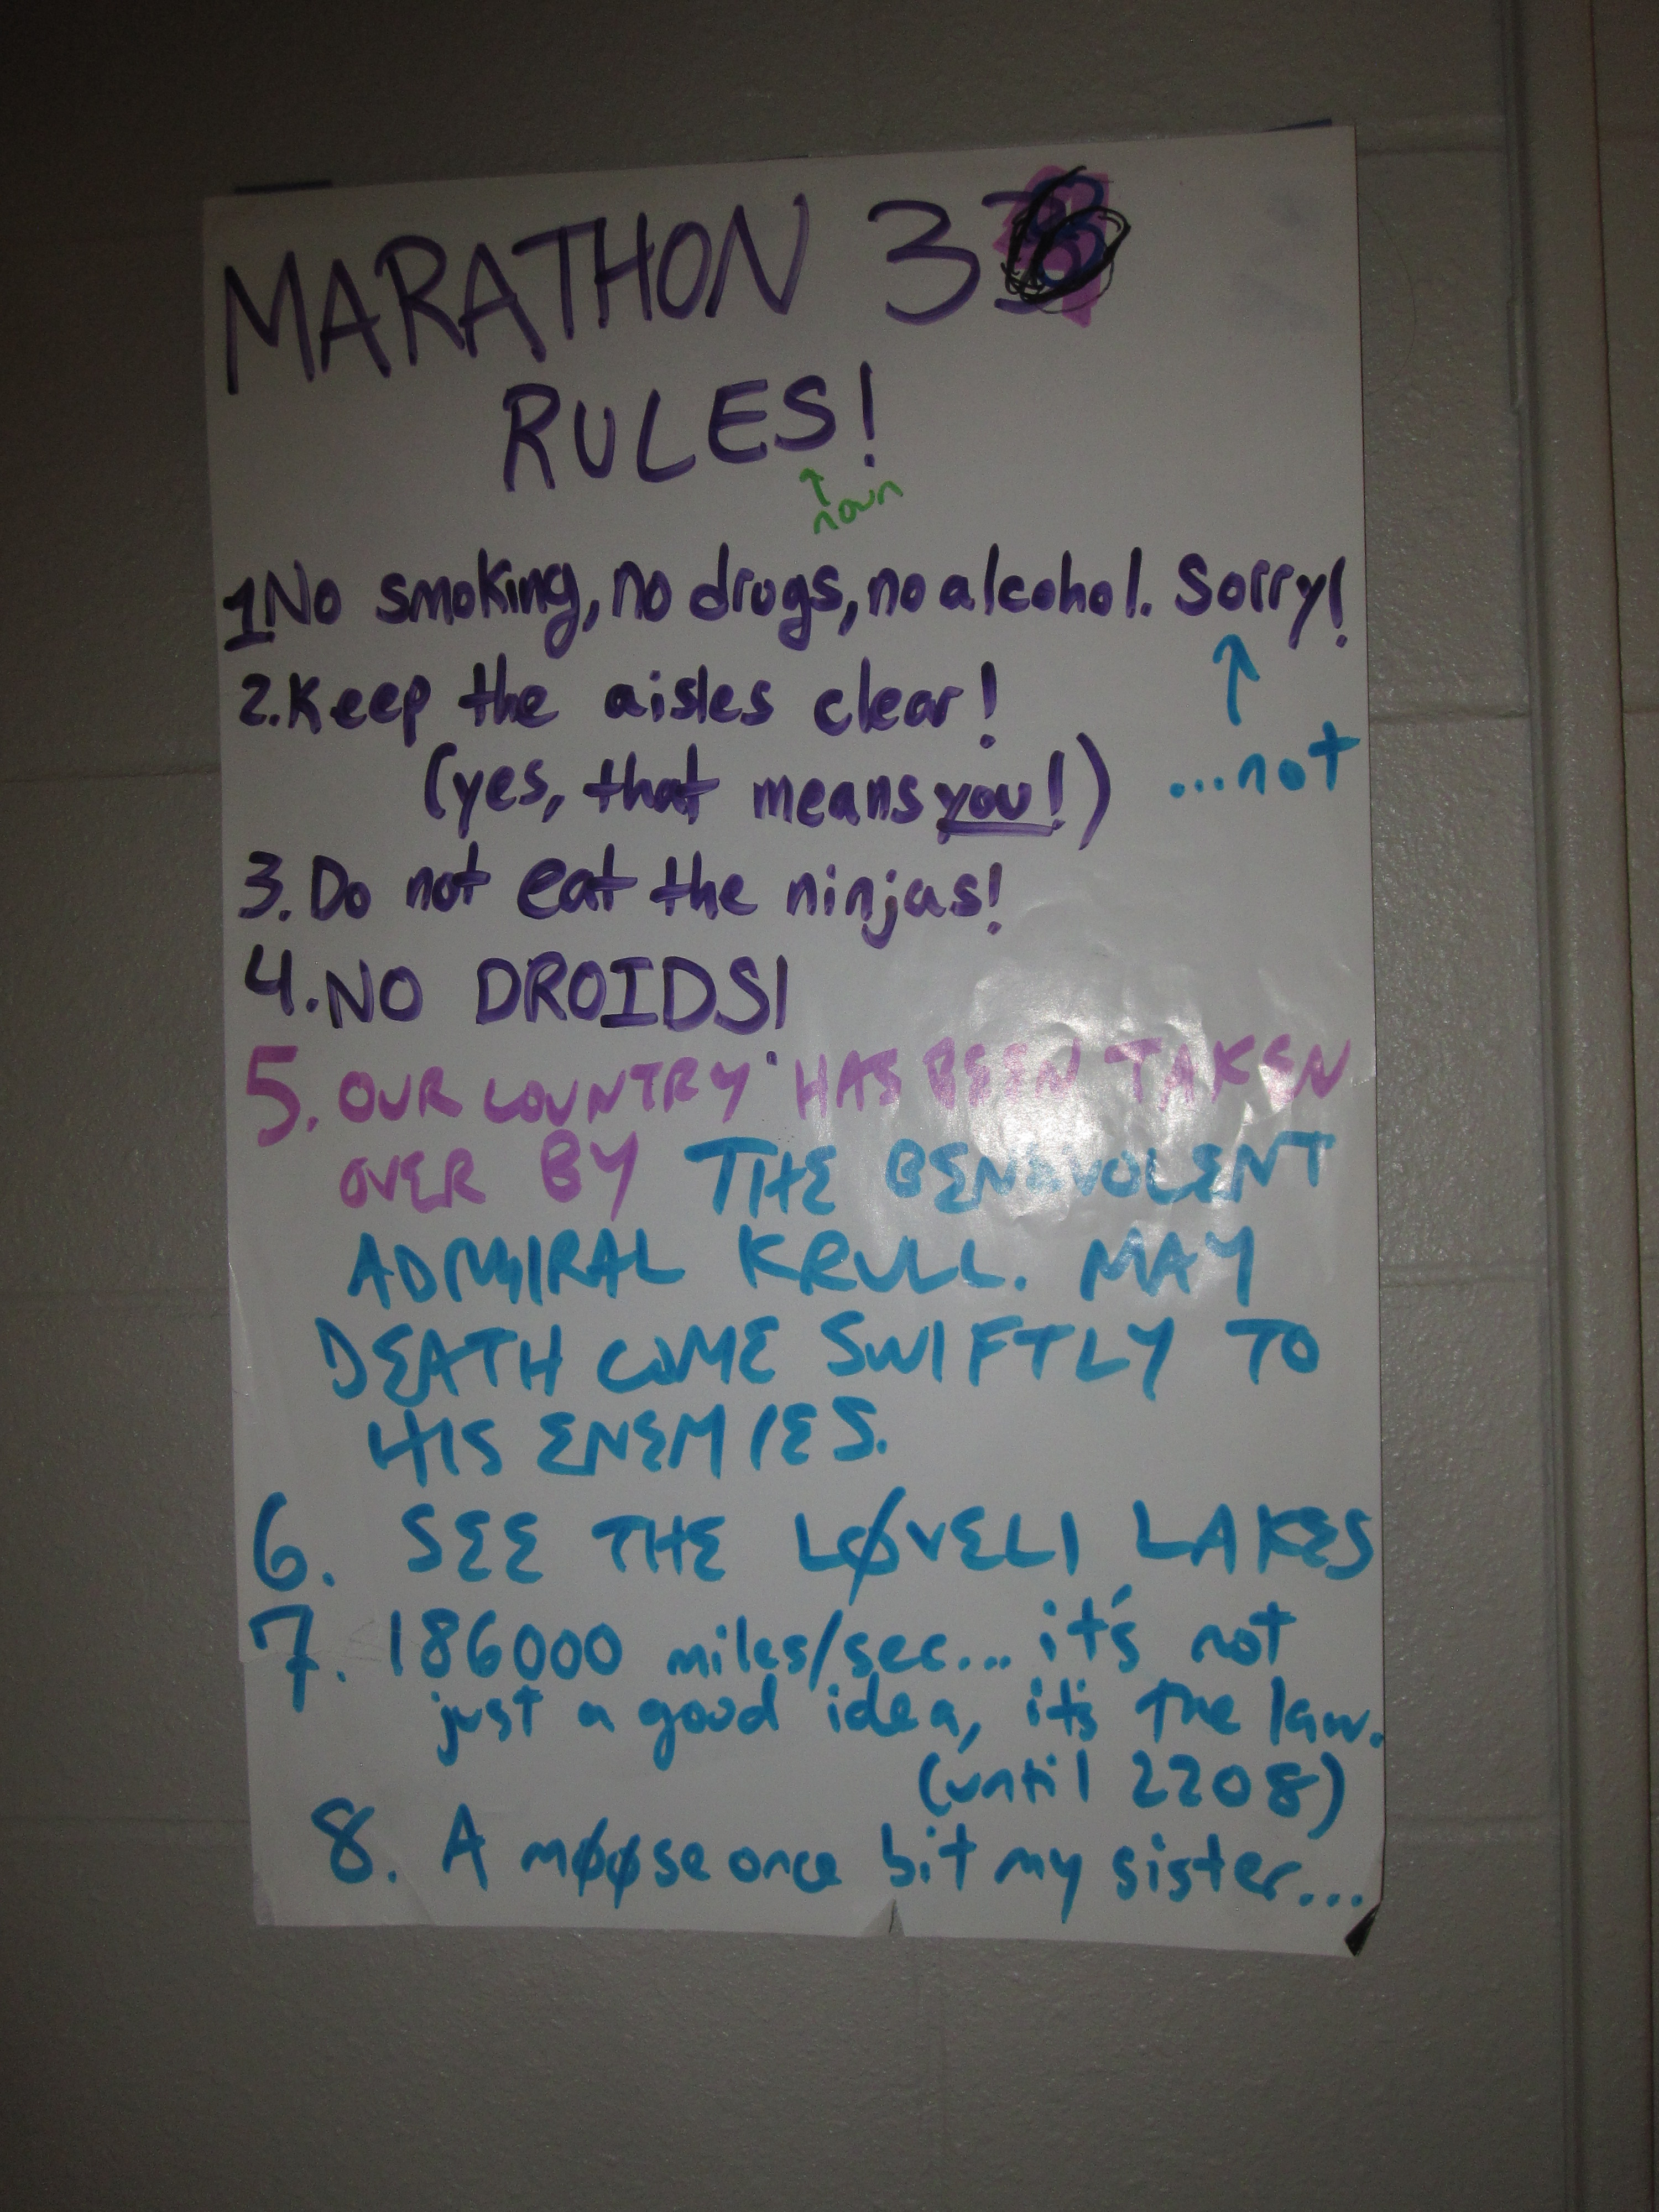 MARATHON 3
RULES!
↑
noun
1 No smoking, no drugs, no alcohol. Sorry!
↑
2. Keep the aisles clear!
...not
(yes, that means you!)
3. Do not eat the ninjas!
4. NO DROIDS!
5. OUR COUNTRY HAS BEEN TAKEN
OVER BY THE BENEVOLENT
ADMIRAL KRULL. MAY
DEATH COME SWIFTLY TO
HIS ENEMIES.
6. SEE THE LØVELI LAKES
7. 186000 miles/sec... it's not
just a good idea, it's the law.
(until 2208)
8. A møøse once bit my sister...